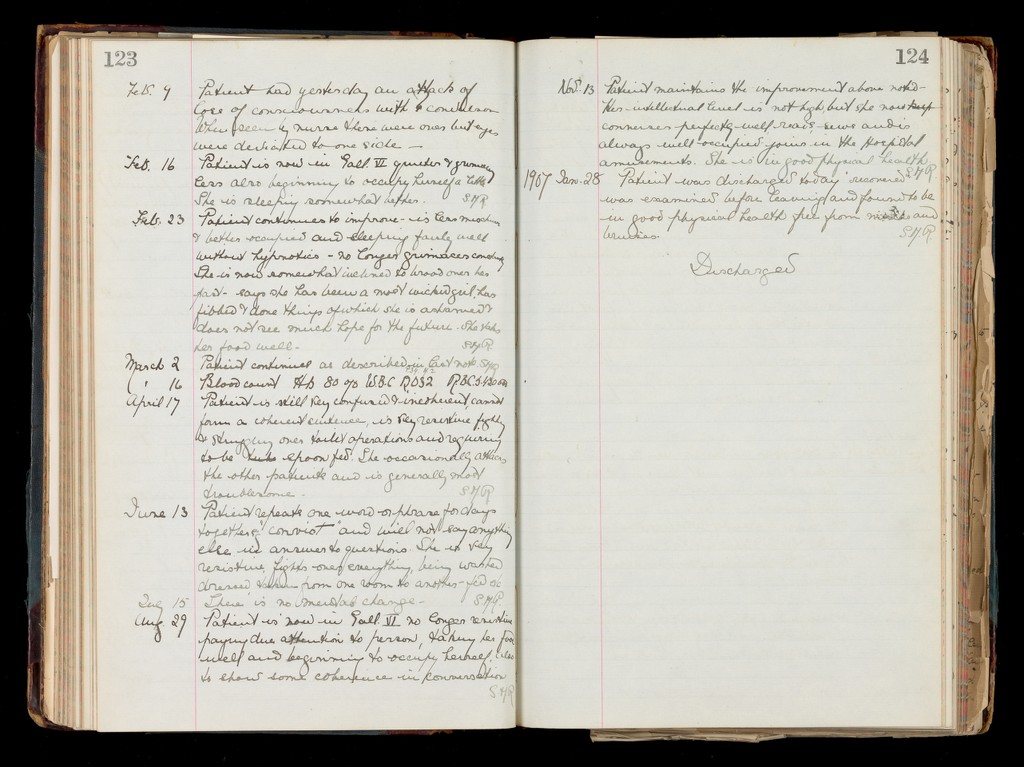 123
Feb. 9 Patient had yesterday an attack of
loss of consciousness with a convulsion
When seen by nurse there were ones but eyes
were deviated to one side —
Feb. 16 Patient is now in Gall. VI quieter & grimacing
less also beginning to occupy herself a little
She is sleeping somewhat better. S.H.R.
Feb. 23 Patient continues to improve - is less
& better occupied and sleeping fairly well
without hypnotics - no longer grimaces constantly
She is now somewhat inclined to brood over her
past - says she has been a most wicked girl, has
fibbed & done things of which she is ashamed &
does not see much hope for the future. She takes
her food well - S.H.R.
March 2 Patient continues as described in last note S.H.R.
" 16 Blood count Hb 80 % W.B.C. R.B.C.
April 17 Patient is still very confused & incoherent, cannot
form a coherent sentence, is very resistive, fights
& struggling over toilet operations and requiring
to be spoon fed. She occasionally attacks
the other patients and is generally most
troublesome. S.H.R.
June 13 Patient repeats one word or phrase for days
together eg "convict" and will not say anything
else in answer to questions. She is very
resistive, fights over everything, being washed
dressed taken from one room to another - fed etc
Aug 15 There is no mental change - S.H.R.
Aug. 29 Patient is now in Gall. VI no longer resistive
paying due attention to person, taking her food
well and beginning to occupy herself, also
to show some coherence in conversation
S.H.R.
124
Nov. 13 Patient maintains the improvement above noted -
Her intellectual level is not high but she now
converses perfectly well reads - sews and is
always well occupied joins in the Hospital
amusements. She is in good physical health
S.H.R.
1907 Jan. 28 Patient was discharged today "recovered"
was examined before leaving and found to be
in good physical health free from marks and
bruises. S.H.R.
Discharged